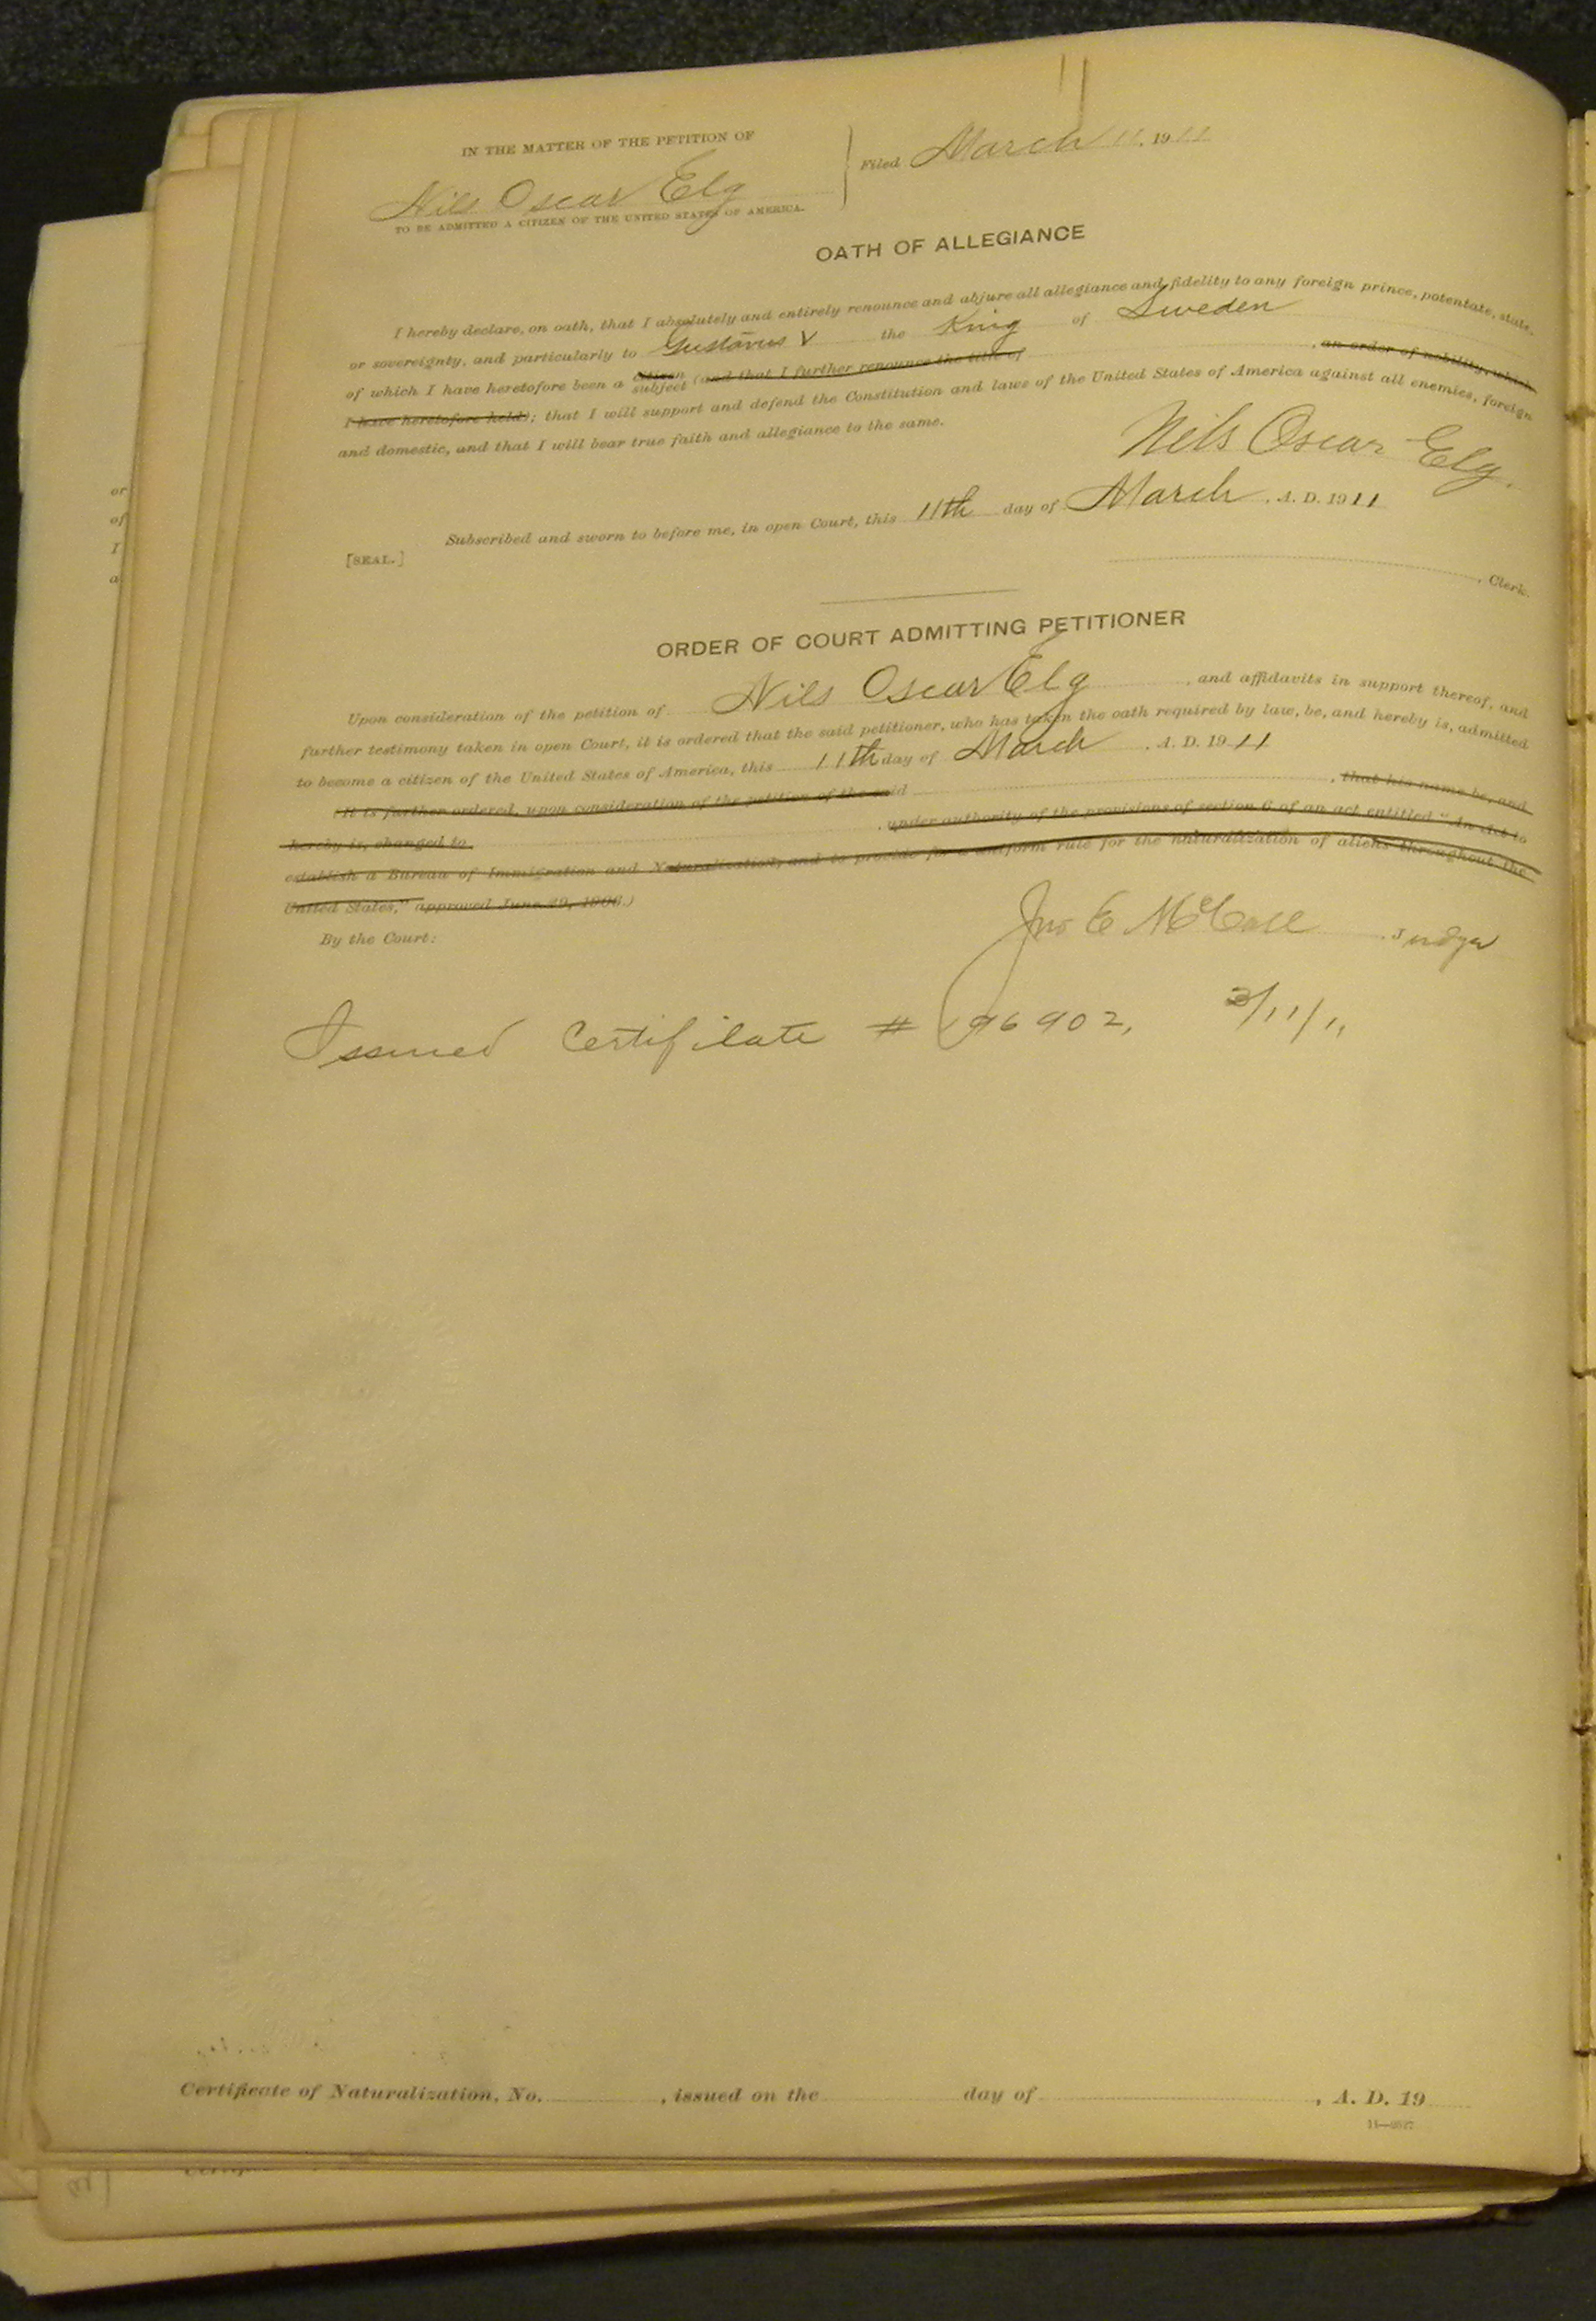 IN THE MATTER OF THE PETITION OF
Nils Oscar Elg
TO BE ADMITTED A CITIZEN OF THE UNITED STATES OF AMERICA.
Filed March 11, 1911
OATH OF ALLEGIANCE
I hereby declare, on oath, that I absolutely and entirely renounce and abjure all allegiance and fidelity to any foreign prince, potentate, state,
or sovereignty, and particularly to Gustavus V the King of Sweden
of which I have heretofore been a citizen subject (and that I further renounce the title of , an order of nobility, which
I have heretofore held); that I will support and defend the Constitution and laws of the United States of America against all enemies, foreign
and domestic, and that I will bear true faith and allegiance to the same.
Nils Oscar Elg.
Subscribed and sworn to before me, in open Court, this 11th day of March, A. D. 1911
[SEAL.]
, Clerk.
ORDER OF COURT ADMITTING PETITIONER
Upon consideration of the petition of Nils Oscar Elg, and affidavits in support thereof, and
further testimony taken in open Court, it is ordered that the said petitioner, who has taken the oath required by law, be, and hereby is, admitted
to become a citizen of the United States of America, this 11th day of March, A. D. 1911
(It is further ordered, upon consideration of the petition of the said , that his name be, and
hereby is, changed to , under authority of the provisions of section 6 of an act entitled "An Act to
establish a Bureau of Immigration and Naturalization, and to provide for a uniform rule for the naturalization of aliens throughout the
United States," approved June 29, 1906.)
By the Court:
Jno E McCall, Judge
Issued Certifilate # 96902, 3/11/11
Certificate of Naturalization, No. , issued on the day of , A. D. 19
or
of
I
a